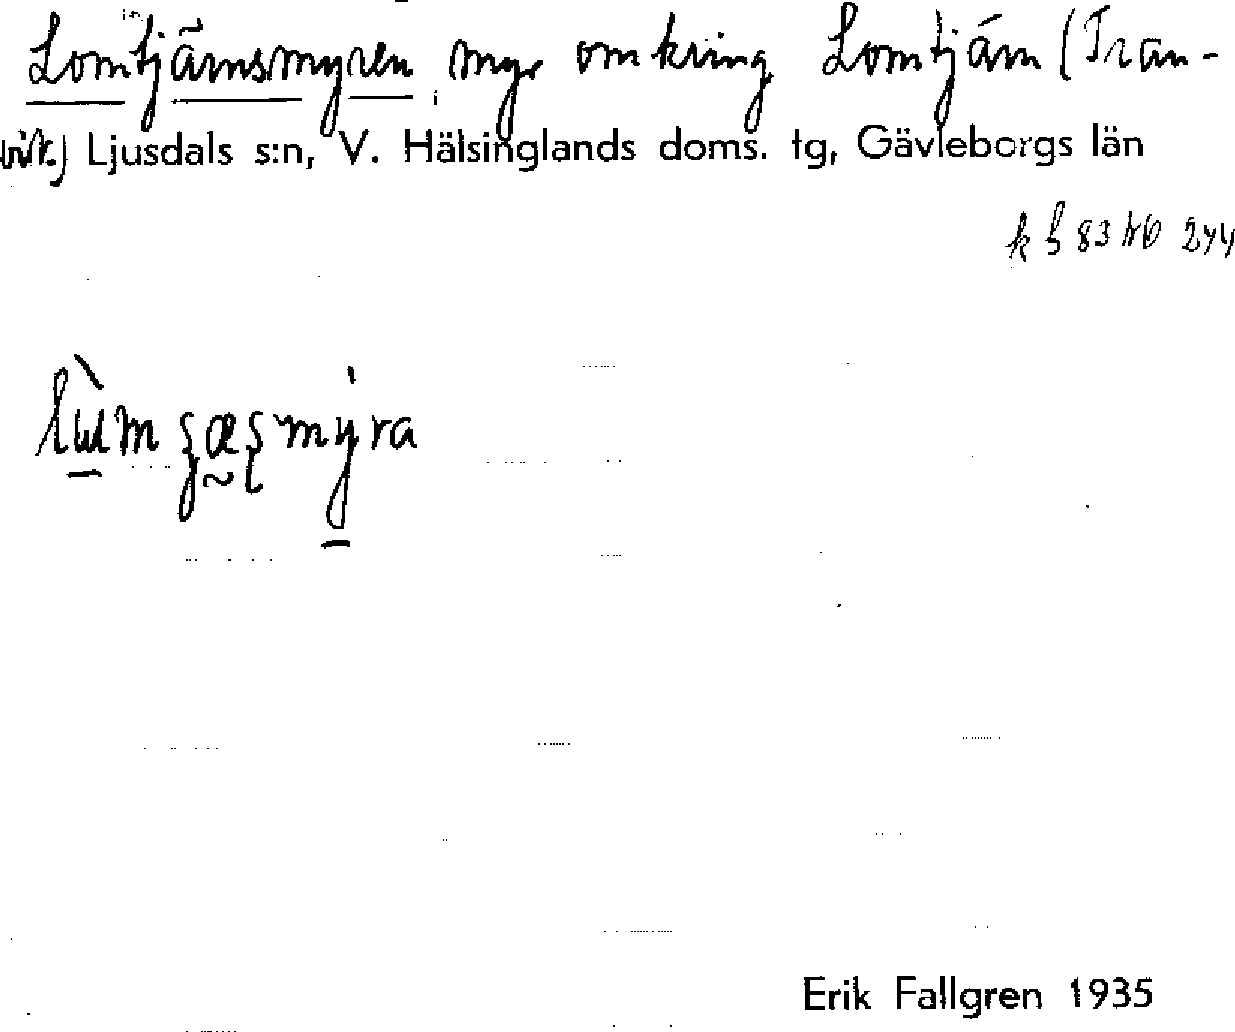 Lomtjärnsmyren myr omkring Lomtjärn (Tran-
vik) Ljusdals s:n, V. Hälsinglands doms. tg, Gävleborgs län
83 244
Erik Fallgren 1935